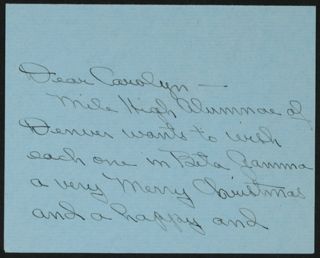 Dear Carolyn —
Mile High Alumnae of
Denver wants to wish
each one in Beta Gamma
a very Merry Christmas
and a happy and